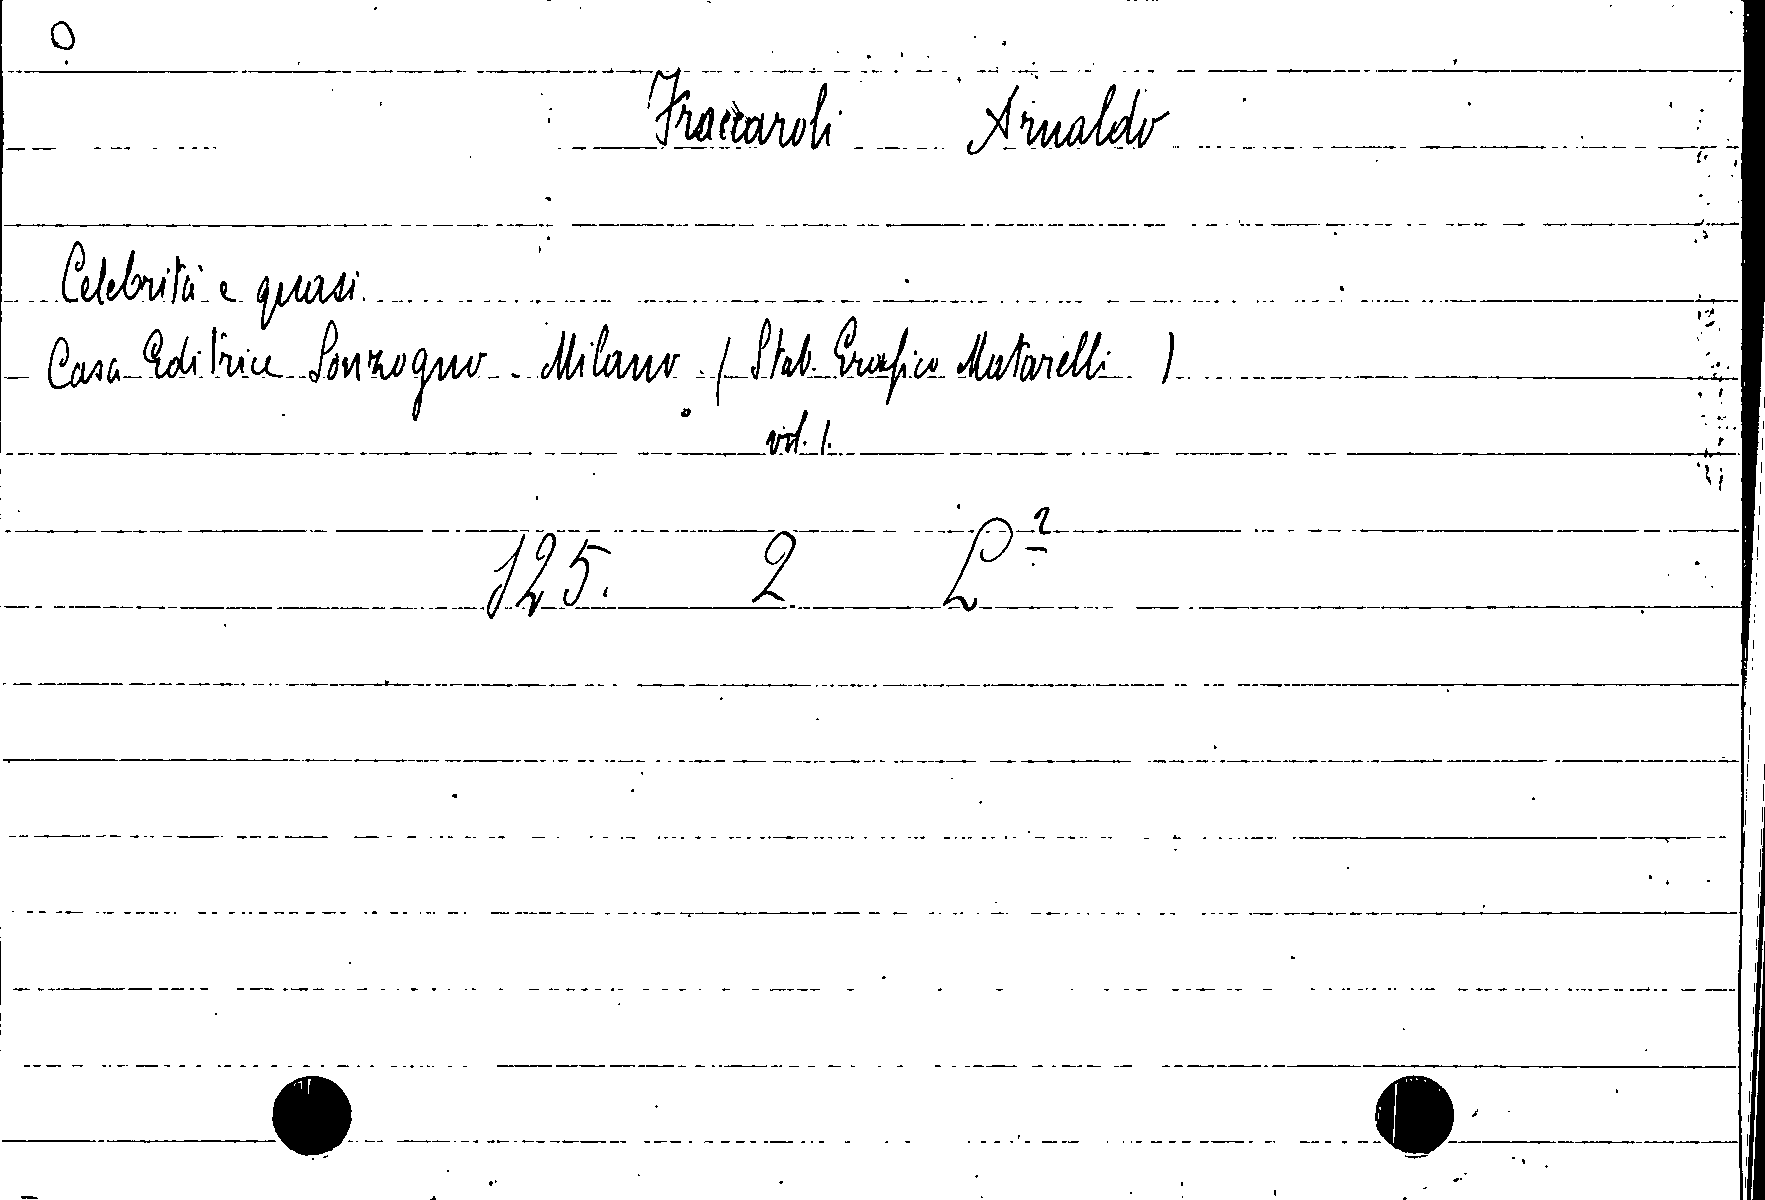 O
Fraccaroli Arnaldo
Celebrità e quasi.
Casa Editrice Sonzogno. Milano. (Stab. Grafico Matarelli)
vol. 1.
125. 2 L²